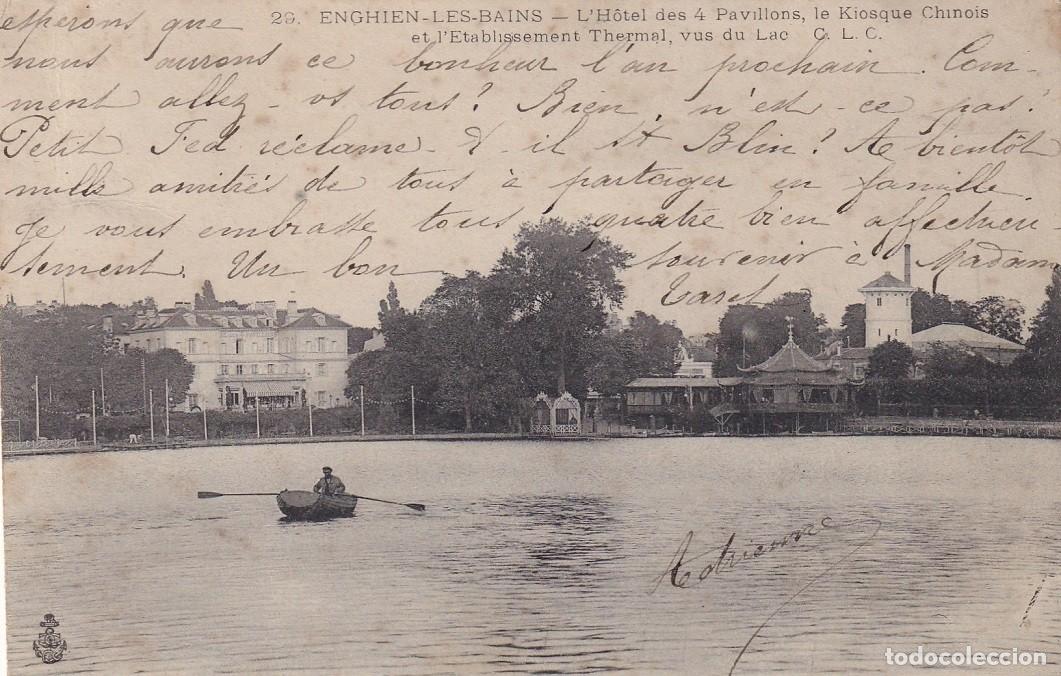 29. ENGHIEN-LES-BAINS — L'Hôtel des 4 Pavillons, le Kiosque Chinois
et l'Etablissement Thermal, vus du Lac C. L. C.
esperons que
nous aurons ce bonheur l'an prochain. Com-
ment allez-vs tous? Bien, n'est-ce pas?
Petit Ted réclame-t-il St Blin? A bientôt
mille amitiés de tous à partager en famille
Je vous embrasse tous quatre bien affectueu
sement. Un bon souvenir à Madam
Adrienne
todocoleccion